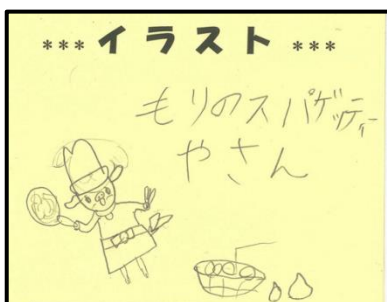 *** イラスト ***
もりのスパゲッティ
やさん